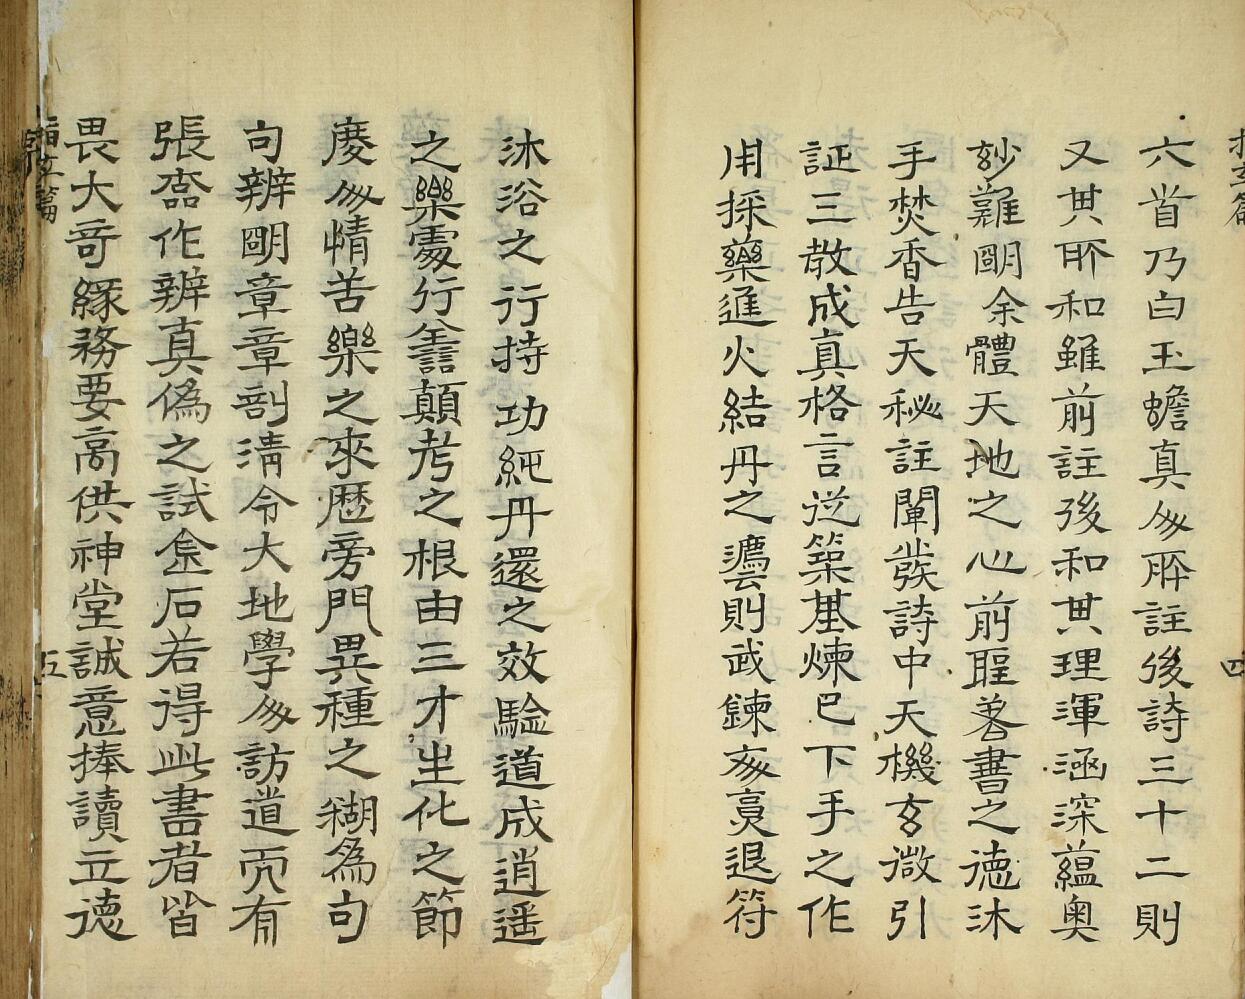 六首乃白玉蟾真人所註後詩三十二則
又其所和雖前註後和其理渾涵深蘊奧
妙難明余體天地之心前聖著書之德沐
手焚香告天秘註闡發詩中天機玄微引
証三教成真格言從築基煉己下手之作
用採藥進火結丹之 則武鍊 退符
沐浴之行持功純丹還之效驗道成逍遥
之樂處行 顛考之根由三才生化之節
度人情苦樂之來歷旁門異種之糊為句
句辨明章章剖清令大地學人訪道 有
張 作辨真偽之試金石若得此書者皆
畏大奇緣務要高供神堂誠意捧讀立德
篇
五